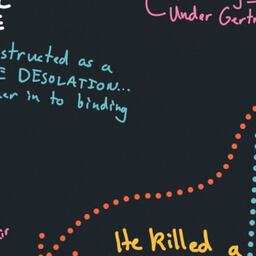 Under Gertr
structed as a
E DESOLATION...
er in to binding
He killed a